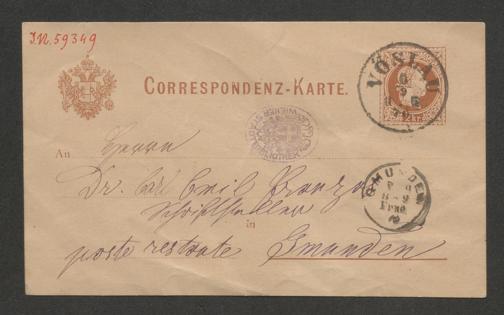 J.N. 59349
CORRESPONDENZ-KARTE.
VÖSLAU
2 kr.
An Herrn
Dr. Carl Emil Franzos
Schriftsteller
in
poste restante Gmunden
GMUNDEN